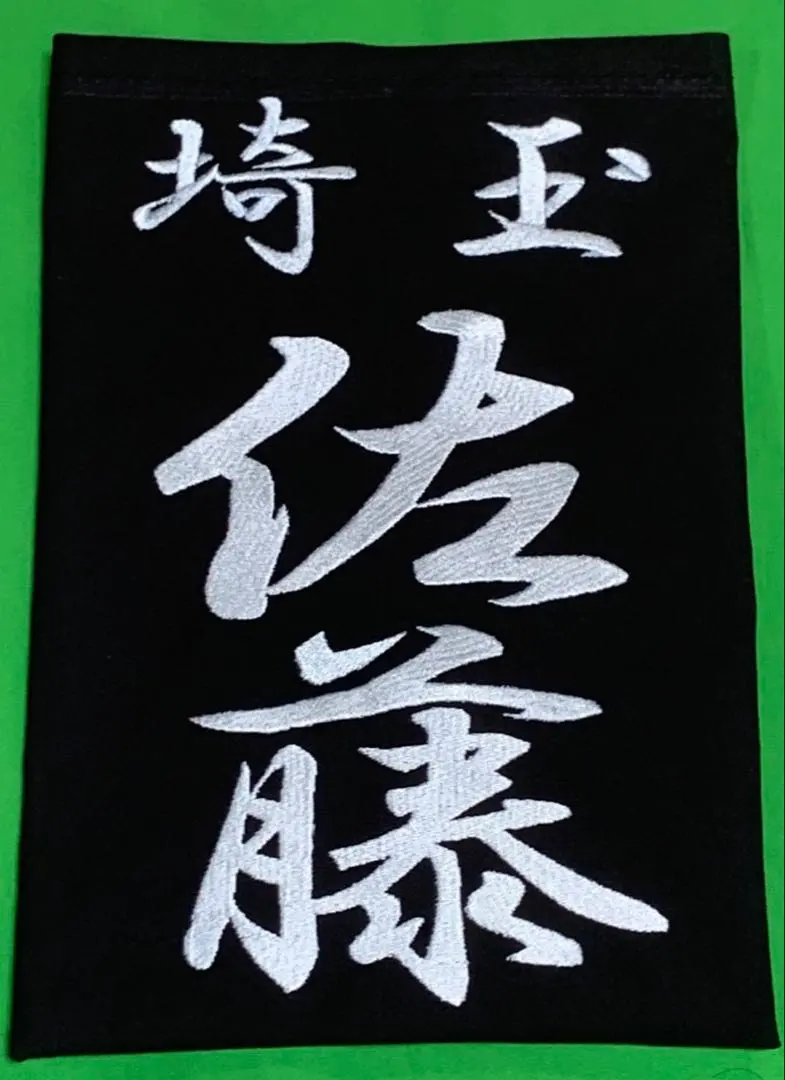 埼玉
佐藤